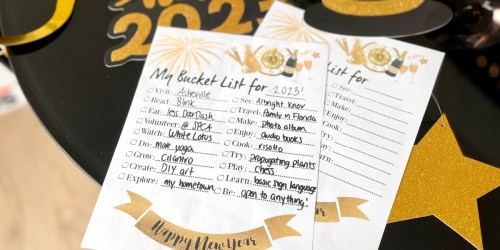 2023
My Bucket List for 2023!
Visit: Asheville
Read: Blink
Eat: less DorDash
Volunteer: @ SPCA
Watch: White Lotus
Do: more yoga
Grow: Cilantro
Create: DIY art
Explore: my hometown
See: Albright Knox
Travel: family in Florida
Make: photo album
Enjoy: audio books
Cook: risotto
Try: propagating plants
Play: Chess
Learn: basic sign language
Be: open to anything!
Happy New Year
List for
See:
Travel:
Make:
Enjoy:
Cook:
Try:
Play:
Learn:
Be:
Year